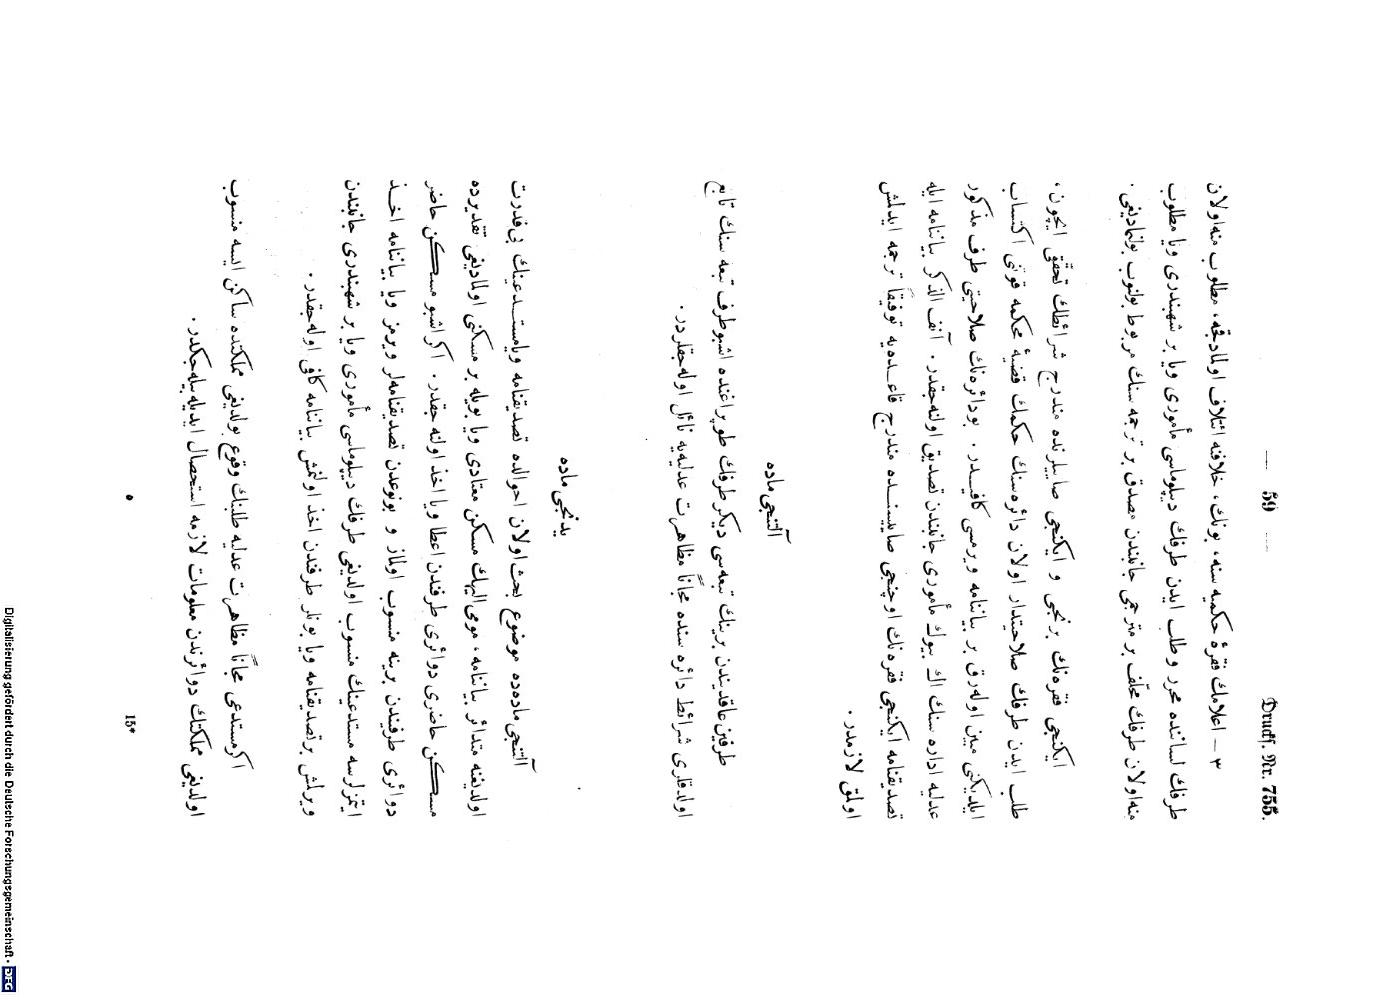 — 59 —
Drucks. Nr. 755.
٣ – اعلامك فقرهٔ حكميه سنه، بونك، خلافنه ائتلاف اولمادقجه، مطلوب منه‌اولان
طرفك لساننده محرر و طلب ايدن طرفك ديپلوماسى مأمورى ويا بر شهبندرى ويا مطلوب
منه‌اولان طرفك محلف بر مترجمى جانبندن مصدق بر ترجمه سنك مربوط بولنوب بولنماديغى.
ايكنجى فقره‌نك برنجى و ايكنجى صاييلرنده مندرج شرائطك تحقّقى ايچون،
طلب ايدن طرفك صلاحيتدار اولان دائره‌سنك حكمك قضيهٔ محكمه قوتنى اكتساب
ايلديكنى مبين اوله‌رق بر بياننامه ويرمسى كافيــدر. بودائره‌نك صلاحيتى طرف مذكور
عدليه اداره سنك اك بيوك مأمورى جانبندن تصديق اولنه‌جقدر. آنف الذكر بياننامه ايله
تصديقنامه ايكنجى فقره‌نك اوچنجى صاييســنده مندرج قاعــده‌يه توفيقاً ترجمه ايدلمش
اولمق لازمدر.
آلتنجى ماده
طرفين‌عاقديندن برينك تبعه‌سى ديكر طرفك طوپراغنده اشبوطرف تبعه سنك تابع
اولدقلرى شرائط دائره سنده مجاناً مظاهرت عدليه‌يه نائل اوله‌جقلردر.
يدنجى ماده
آلتنجى ماده‌ده موضوع بحث‌اولان احوالده تصديقنامه ويامستــدعينك بى‌قدرت
اولديغنه متدائر بياننامه، مومى‌اليهك مسكن معتادى ويا بويله بر مسكنى اولمديغى تقديرده
مسكن حاضرى دوائرى طرفندن اعطا ويا اخذ اولنه جقدر. اكر اشبو مسكن حاضر
دوائرى طرفيندن برينه منسوب اولماز و بونوعدن تصديقنامه‌لر ويرمز ويا بياننامه اخــذ
ايتمزلرسه مستدعينك منسوب اولديغى طرفك ديپلوماسى مأمورى ويا بر شهبندرى جانبندن
ويرلمش بر تصديقنامه ويا بونلر طرفندن اخذ اولنمش بياننامه كافى اوله‌جقدر.
اكرمستدعى مجاناً مظاهرت عدليه طلبنك وقوع بولديغى مملكتده ساكن ايسه منسوب
اولديغى مملكتك دوائرندن معلومات لازمه استحصال ايديله‌بيله‌جكدر.
15*
Digitalisierung gefördert durch die Deutsche Forschungsgemeinschaft - DFG